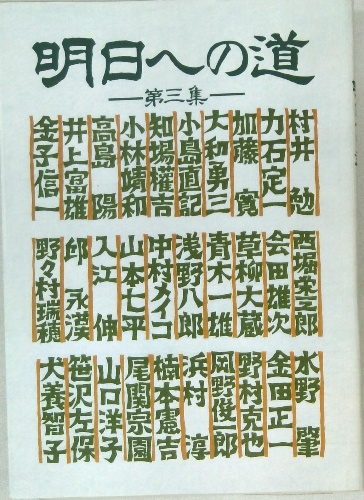 明日への道
第三集
村井 勉
力石定一
加藤 寛
大和勇三
小島直記
知場權吉
小林靖和
高島 陽
井上富雄
金子信一
西堀栄三郎
会田雄次
草柳大蔵
青木一雄
浅野八郎
中村メイコ
山本七平
入江 伸
邱 永漢
野々村瑞穂
水野 肇
金田正一
野村克也
岡野俊一郎
浜村 淳
楠本憲吉
尾関宗園
山口洋子
笹沢左保
犬養智子